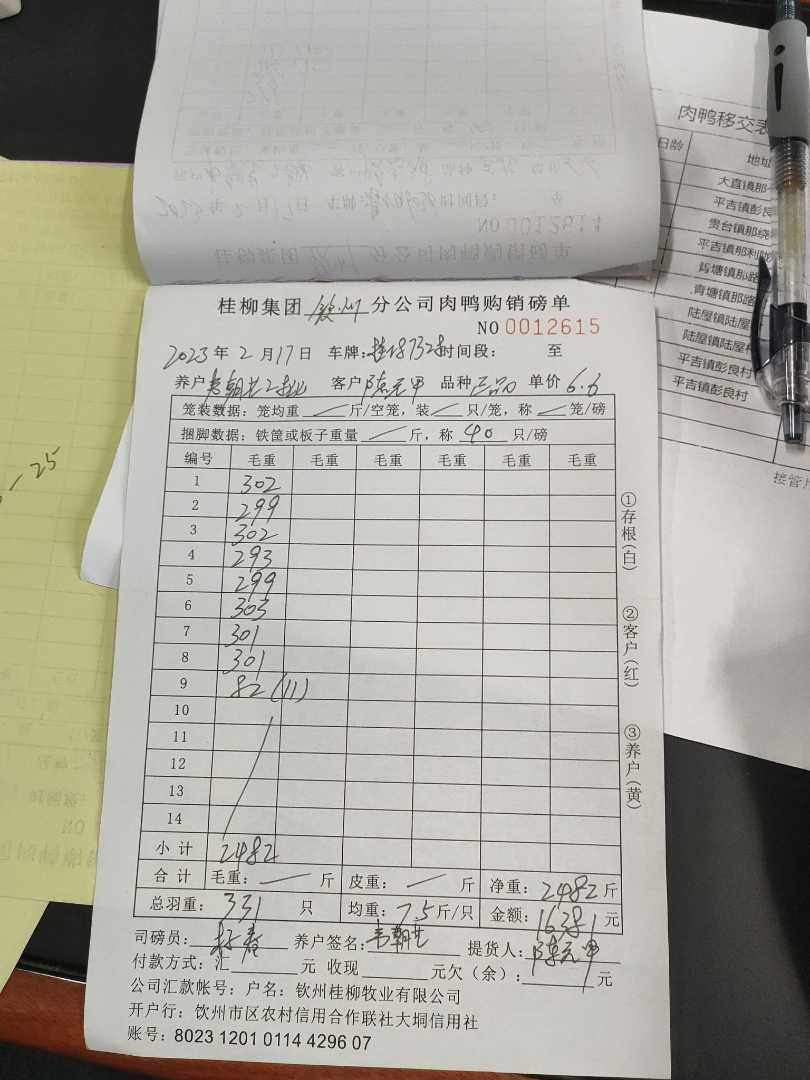 桂柳集团 钦州 分公司肉鸭购销磅单
NO 0012615
2023 年 2 月 17 日 车牌: 时间段: 至
养户 客户 陈元甲 品种 正品 单价 6.6
笼装数据：笼均重 / 斤/空笼，装 / 只/笼，称 / 笼/磅
捆脚数据：铁筐或板子重量 / 斤，称 40 只/磅
编号 毛重 毛重 毛重 毛重 毛重 毛重
1 302
2 299
3 302
4 293
5 299
6 303
7 301
8 301
9 82 (11)
10
11
12
13
14
小 计 2482
合 计 毛重: / 斤 皮重: / 斤 净重: 2482 斤
总羽重: 331 只 均重: 7.5 斤/只 金额: 16381 元
司磅员: 养户签名: 韦朝 提货人: 陈元甲
付款方式：汇 元 收现 元欠（余）: 元
公司汇款帐号：户名：钦州桂柳牧业有限公司
开户行：钦州市区农村信用合作联社大垌信用社
账号：8023 1201 0114 4296 07
①存根(白)
②客户(红)
③养户(黄)
肉鸭移交表
日龄 地址
大直镇那
平吉镇彭良
贵台镇那绕
平吉镇那利
青塘镇那路
青塘镇那路
陆屋镇陆屋
陆屋镇陆屋村
平吉镇彭良村
平吉镇彭良村
接管
-25
NO 0012614